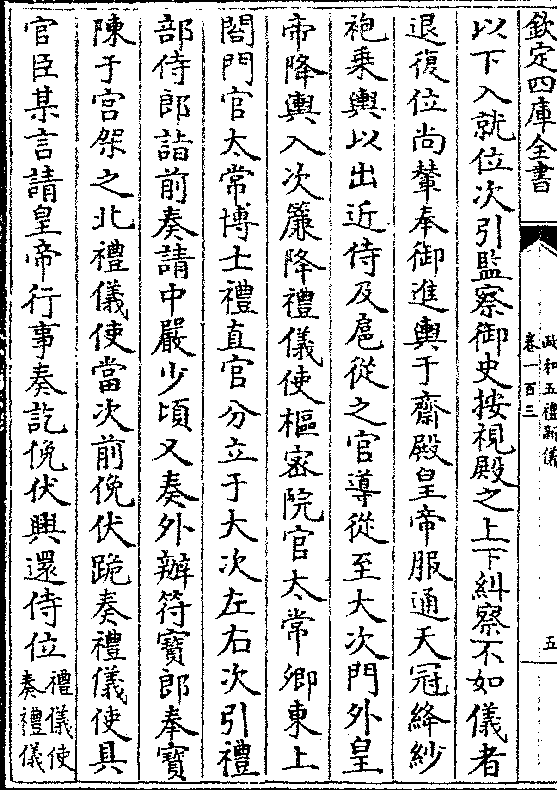 欽定四庫全書
政和五禮新儀
卷一百三
五
以下入就位次引監察御史按視殿之上下糾察不如儀者
退復位尚輦奉御進輿于齋殿皇帝服通天冠絳紗
袍乗輿以出近侍及扈從之官導從至大次門外皇
帝降輿入次簾降禮儀使樞密院官太常卿東上
閤門官太常博士禮直官分立于大次左右次引禮
部侍郎詣前奏請中嚴少頃又奏外辦符寶郎奉寶
陳于宫架之北禮儀使當次前俛伏跪奏禮儀使具
官臣某言請皇帝行事奏訖俛伏興還侍位禮儀使
奏禮儀